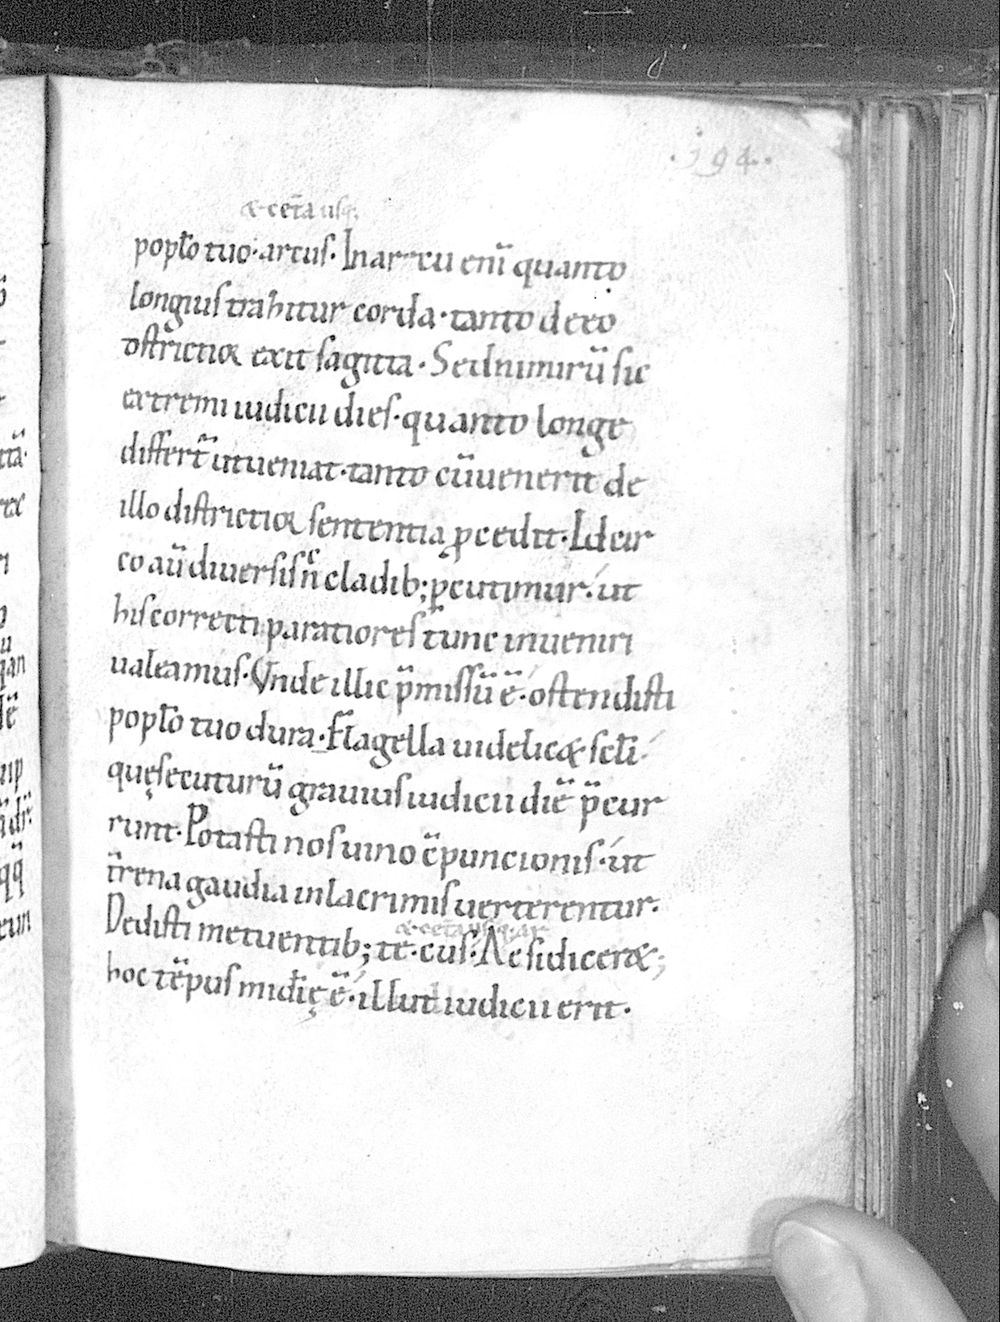 ·194·
&·cet̄a usq;
popło tuo·arcus· In arcu enī quanto
longius trahitur corda· tanto de eo
districtior exit sagitta· Sed nimirū sic
extremi iudicii dies· quanto longe
differt̄ ut ueniat· tanto cū uenerit de
illo districtior sententia ꝓcedit· Idcir
co aū diuersis nc̄ cladib; ꝑcutimur· ut
his correcti paratiores tūnc inueniri
ualeamus· Vnde illic p̄missū ē· ostendisti
popło tuo dura· Flagella uidelic& scłi·
quę secuturū grauius iudicii diē p̄cur
runt· Potasti nos uino cp̄uncionis· ut
t̄rena gaudia in lacrimis uerterentur·
&·cet̄a usq· ar
Dedisti metuentib; te·cus· Ac si dicer&;
hoc tēpus mīdię ē· illut iudicii erit·